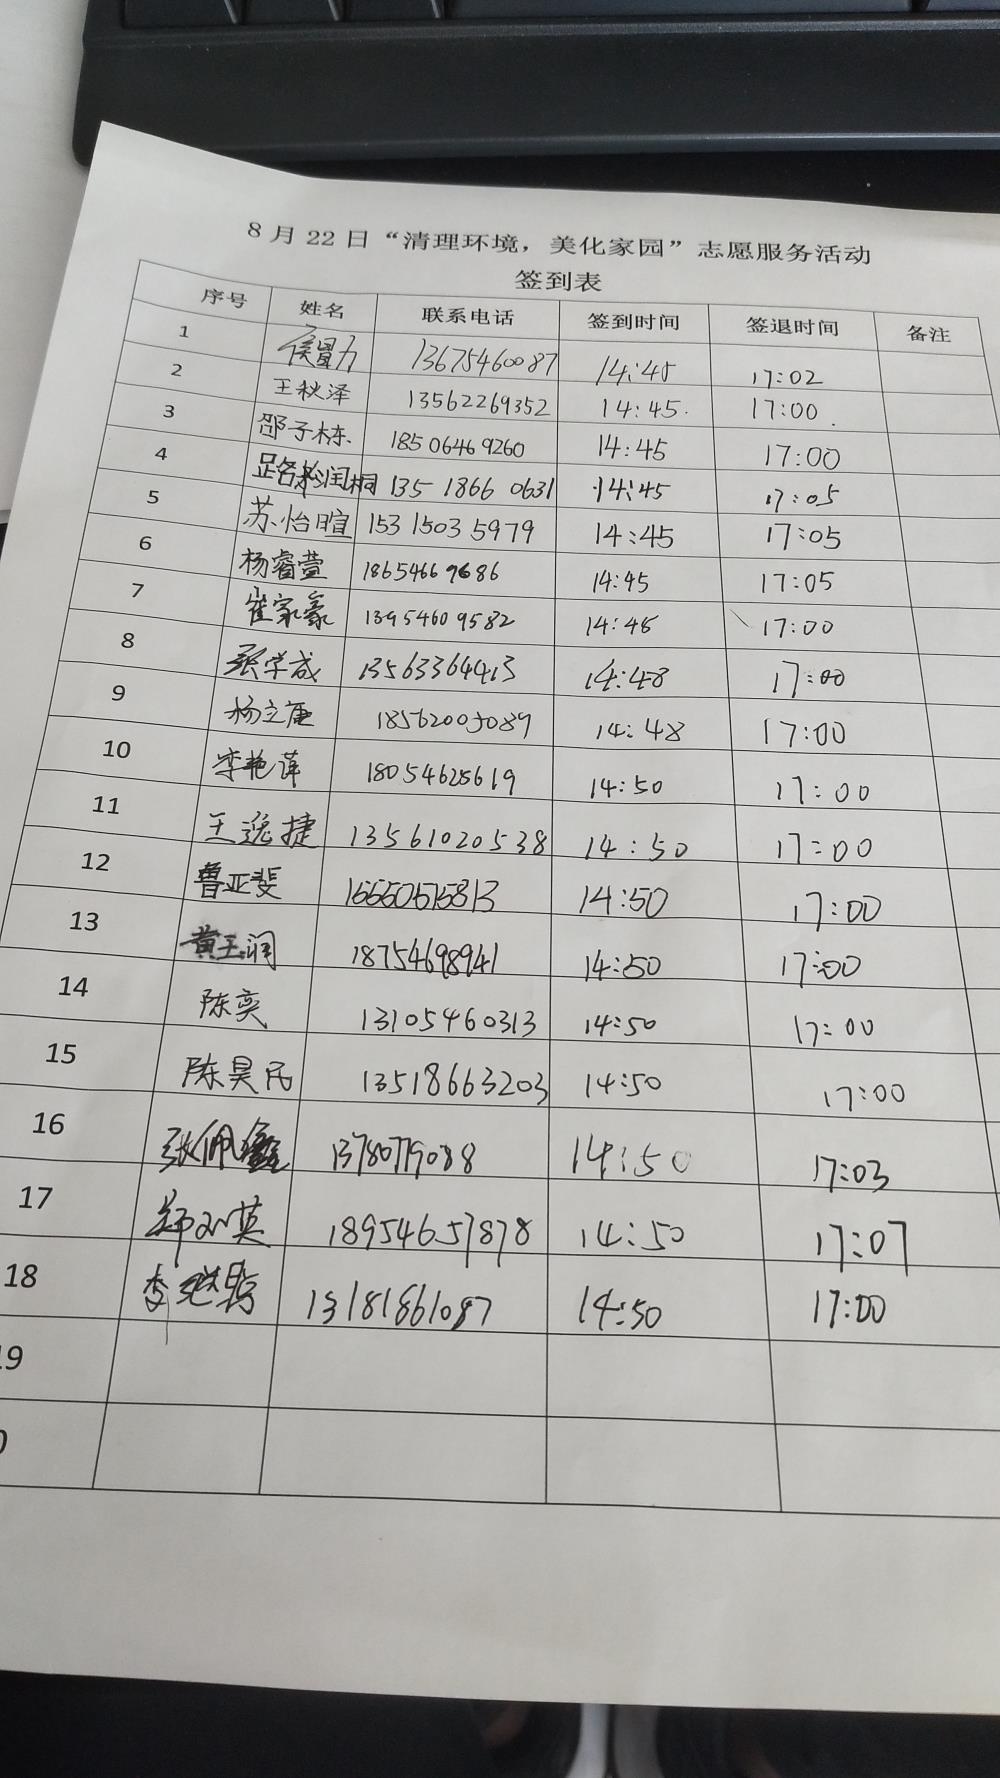 8月22日“清理环境，美化家园”志愿服务活动
签到表
序号 姓名 联系电话 签到时间 签退时间 备注
1 13675460087 14:45 17:02
2 王秋泽 13562269352 14:45. 17:00.
3 邵子栋 18506469260 14:45 17:00
4 润桐 135 1866 0631 14:45 17:05
5 苏怡暄 153 1503 5979 14:45 17:05
6 杨睿萱 18654669686 14:45 17:05
7 崔家豪 13954609582 14:45 17:00
8 张学成 13563364413 14:48 17:00
9 杨立 18562005089 14:48 17:00
10 李艳萍 18054625619 14:50 17:00
11 王逸捷 13561020538 14:50 17:00
12 鲁亚斐 16660515813 14:50 17:00
13 黄玉润 18754698941 14:50 17:00
14 陈奕 13105460313 14:50 17:00
15 陈昊民 13518663203 14:50 17:00
16 张佩 13780779088 14:50 17:03
17 郑英 18954657878 14:50 17:07
18 李 13181861087 14:50 17:00
19
0